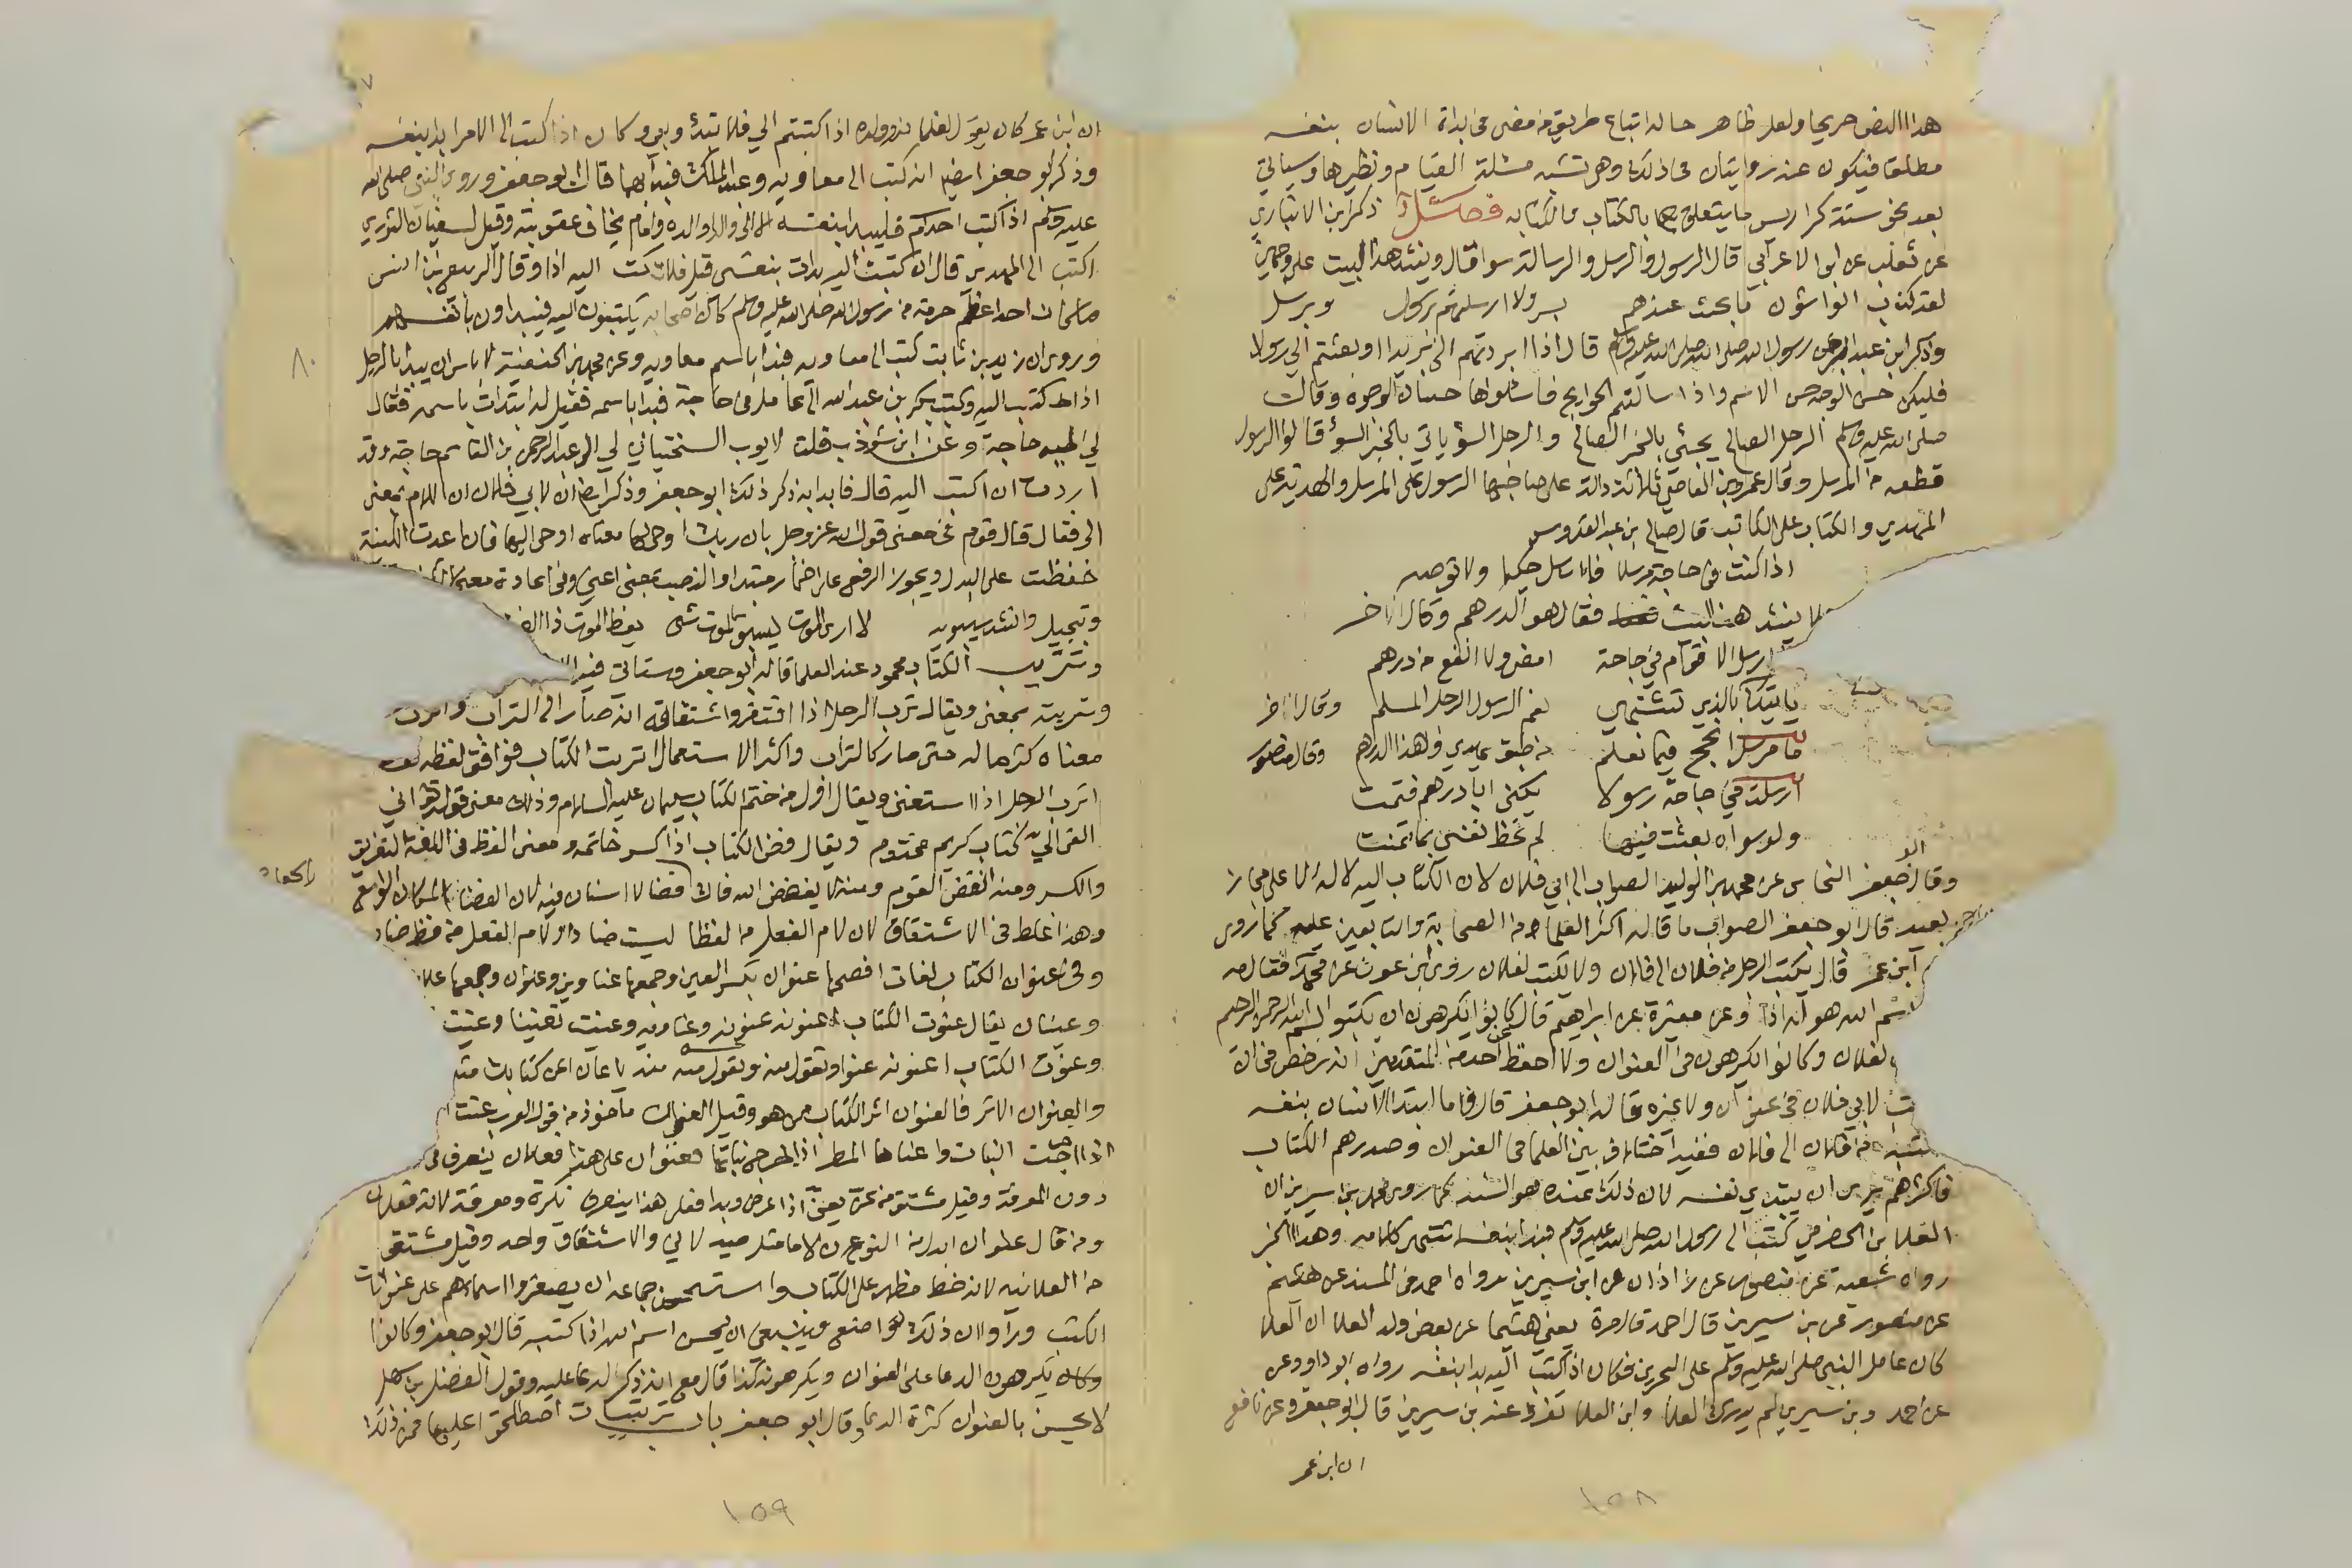 هذا النص صريحا ولعل ظاهر حاله اتباع طريق من مضى في بداة الانسان بنفسه
مطلقا فيكون عنه روايتان في ذلك وهي تشبه مسئلة القيام ونظيرها وسياتي
بعد نحو ستة كراريس ما يتعلق بالكتاب والكتابه فصل ذكر ابن الانباري
عن ثعلب عن ابن الاعرابي قال الرسول والرسل والرسالة سوا قال وينشد هذا البيت على وجهين
لقد كذب الواشون ما بحت عندهم بسر ولا ارسلتهم برسول وبرسل
وذكر ابن عبد البر عن رسول الله صلى الله عليه وسلم قال اذا ابردتم الي بريدا او بعثتم الي رسولا
فليكن حسن الوجه حسن الاسم واذا سالتم الحوايج فاسئلوها حسان الوجوه وقال
صلى الله عليه وسلم الرجل الصالح يجئ بالخبر الصالح والرجل السؤ ياتي بالخبر السؤ قالوا الرسول
قطعه من المرسل وقال عمرو بن العاصي ثلاثة دالة على صاحبها الرسول على المرسل والهدية على
المهدي والكتاب على الكاتب قال صالح بن عبد القدوس
اذا كنت في حاجة مرسلا فارسل حكيما ولا توصه
ينشد هذا البيت فقال هو الدرهم وقال اخر
ارسل الاقوام في حاجة امضى ولا انفع من درهم
ياتيك بالذي تشتهي نعم الرسول الرجل المسلم وقال اخر
ما مرسل انجح فيما نعلم من طبق يهدى وهذا الدرهم وقال منصور
ارسلت في حاجة رسولا يكنى ابا درهم فتمت
ولو سواه بعثت فيها لم تحظ نفسي بما تمنت
وقال جعفر النحاس عن محمد بن الوليد الصواب الى ابي فلان لان الكتاب اليه لا له الا على مجاز
بعيد قال ابو جعفر الصواب ما قاله اكثر العلماء من الصحابة والتابعين عليه كما روى
ابن عمر قال يكتب الرجل من فلان الى فلان ولا يكتب لفلان روى ابن عون عن محمد فقال مه
اسم الله هو له اذا وعن مغيرة عن ابراهيم قال كانوا يكرهون ان يكتبوا بسم الله الرحمن الرحيم
لفلان وكانوا يكرهون في العنوان ولا احفظ عن احد من المتقدمين انه رخص في ان
لابي فلان في عنوان ولا غيره قال ابو جعفر قال واما ابتدا الانسان بنفسه
من فلان الى فلان ففيه اختلاف بين العلما في العنوان وصدرهم الكتاب
فاكثرهم يرى ان يبتدي بنفسه لان ذلك عنده هو السنة كما روى محمد بن سيرين ان
العلا بن الحضرمي كتب الى رسول الله صلى الله عليه وسلم فبدا بنفسه انتهى كلامه وهذا الخبر
رواه شعبة عن منصور عن زاذان عن ابن سيرين ورواه احمد في المسند عن هشيم
عن منصور عن بن سيرين قال احمد قال مرة يعني هشيما عن بعض ولد العلا ان العلا
كان عامل النبي صلى الله عليه وسلم على البحرين فكان اذا كتب اليه بدا بنفسه رواه ابو داود عن
عن احمد وبن سيرين لم يدرك العلا وابن العلا تفرد عنه بن سيرين قال ابو جعفر وعن نافع
ان ابن عمر
١٥٨
ان ابن عمر كان يقول لغلمانه وولده اذا كتبتم الي فلا تبدؤ وبي وكان اذا كتب الى الامرا بدا بنفسه
وذكر ابو جعفر ايضا انه كتب الى معاويه وعبد الملك فبدا بهما قال ابو جعفر وروي النبي صلى الله
عليه وسلم اذا كتب احدكم فليبدا بنفسه الا الى والد او والده وامام يخاف عقوبته وقيل لسفيان الثوري
اكتب الى المهدي قال ان كتبت اليه بدات بنفسي قيل فلا تكتب اليه اذا وقال الربيع بن انس
ما كان احد اعظم حرمة من رسول الله صلى الله عليه وسلم كان اصحابه يكتبون اليه فيبداون بانفسهم
وروي ان زيد بن ثابت كتب الى معاويه فبدا باسم معاويه وعن محمد بن الحنفية لا باس ان يبدا بالرجل
اذا كتب اليه وكتب بكر بن عبد الله الى عامل في حاجة فبدا باسمه فقيل له ابتدات باسمه فقال
لي اليه حاجة وعن ابن شوذب قلت لايوب السختياني لي الى عبد الرحمن بن القاسم حاجة وقد
اردت ان اكتب اليه قال فابدا به ذكر ذلك ابو جعفر وذكر ايضا انه لابي فلان ان اللام بمعنى
الى فقال قال قوم في معنى قول الله عز وجل بان ربك اوحى لها معناه اوحى اليها فان اعدت الكنية
خفظت على البدل ويجوز الرفع على اضمار مبتدا والنصب بمعنى اعني وفي اعادة
وتبجيل وانشد سيبويه لا ارى الموت يسبق الموت شئ نغص الموت ذا الغنى
وتتريب الكتاب محمود عند العلما قاله ابو جعفر وستاتي فيه
وتربت بمعنى ويقال ترب الرجل اذا افتقر واشتقاقه انه صار الى التراب واترب
معناه كثر ماله حتى صار كالتراب واكثر الاستعمال اتربت الكتاب فوافق لفظه
اترب الرجل اذا استغنى ويقال اول من ختم الكتاب سليمان عليه السلام وذلك معنى قوله تعالى اني
القي الي كتاب كريم مختوم ويقال فض الكتاب اذا كسر خاتمه ومعنى الفظ في اللغة التفريق
والكسر ومنه انفض القوم ومنه لا يفضض الله فاك فضا لا اسنان فيه لان الفضا المكان الواسع
وهذا غلط في الاشتقاق لان لام الفعل من الفظا ليست ضادا ولام الفعل من فض ضاد
وفي عنوان الكتاب لغات افصحها عنوان بكسر العين وجمعها عناوين وعلوان وجمعها
وعينان يقال عنونت الكتاب اعنونه عنونه وعناونه وعنيت تعنينا وعنيت
وعنوت الكتاب اعنونه عنوا وتقول منه
والعنوان الاثر فالعنوان اثر الكتاب من هو وقيل العنوان ماخوذ من قول العرب عنت
النبات واعناها المطر فعنوان على هذا فعلان ينصرف في
دون المعرفة وقيل مشتق من عن يعن اذا عرض وبدا فعلى هذا ينصرف نكرة ومعرفة لانه فعلان
ومن قال علوان ابدل من النون لاما مثل صيدلاني والاشتقاق واحد وقيل مشتق
من العلانيه لانه خط مظهر على الكتاب واستحسن جماعه ان يصغروا اسماهم على عنوانات
الكتب وراوا ان ذلك تواضع وينبغي ان يحسن اسم الله اذا كتبه قال ابو جعفر وكانوا
يكرهون الدعا على العنوان ويكرهونه كذا قال مع انه ذكر الدعا عليه وقول الفضل بن سهل
لا يحسن بالعنوان كثرة الدعا وقال ابو جعفر باب ترتيبات اصطلحوا عليها فمن ذلك
١٥٩